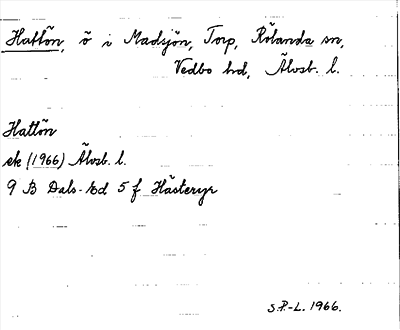 Hattön, ö i Madsjön, Torp, Rölanda sn,
Vedbo hd, Älvsb. l.
Hattön
ek (1966) Älvsb. l.
9 B Dals-Ed 5 f Hästeryr
S.P.-L. 1966.